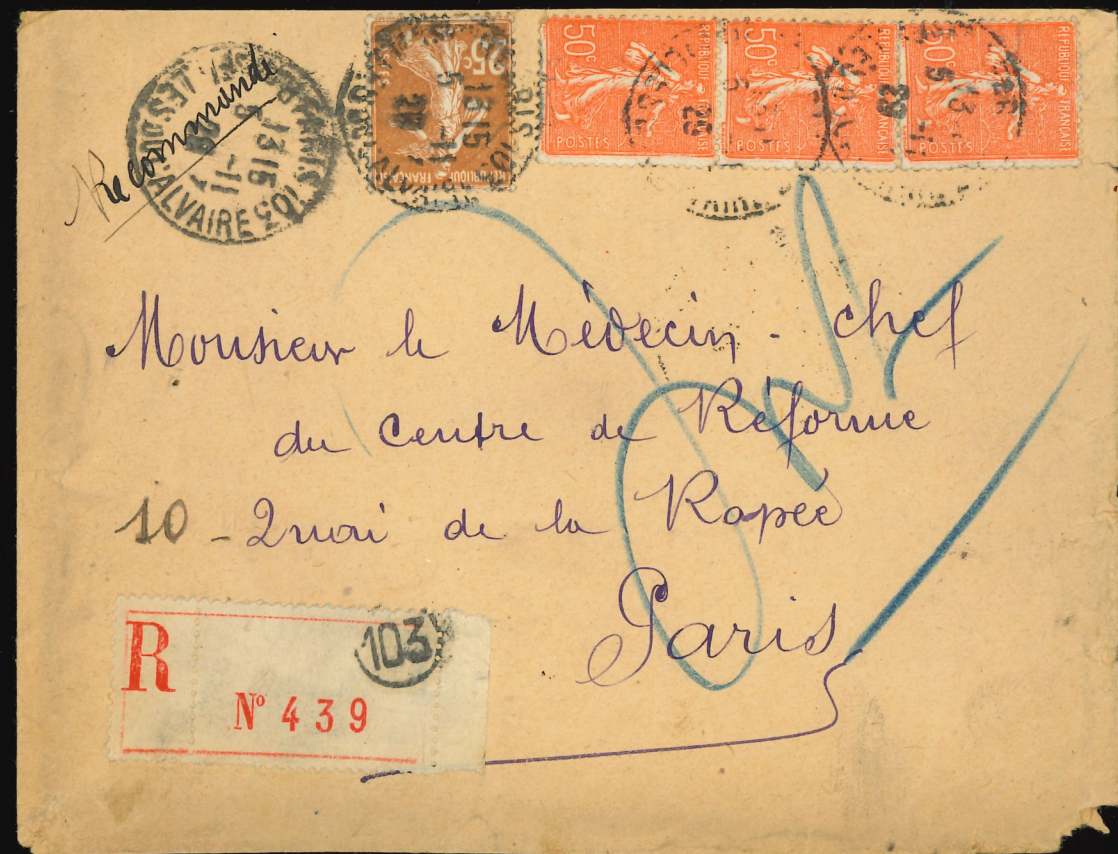 Recommandé
PARIS 103
13 15
5 -11
25c
REPUBLIQUE FRANÇAISE
50c
REPUBLIQUE FRANÇAISE
POSTES
50c
REPUBLIQUE FRANÇAISE
POSTES
50c
REPUBLIQUE FRANÇAISE
POSTES
Monsieur le Médecin - chef
du Centre de Réforme
10 - Quai de la Rapée
Paris
R
103
Nº 439